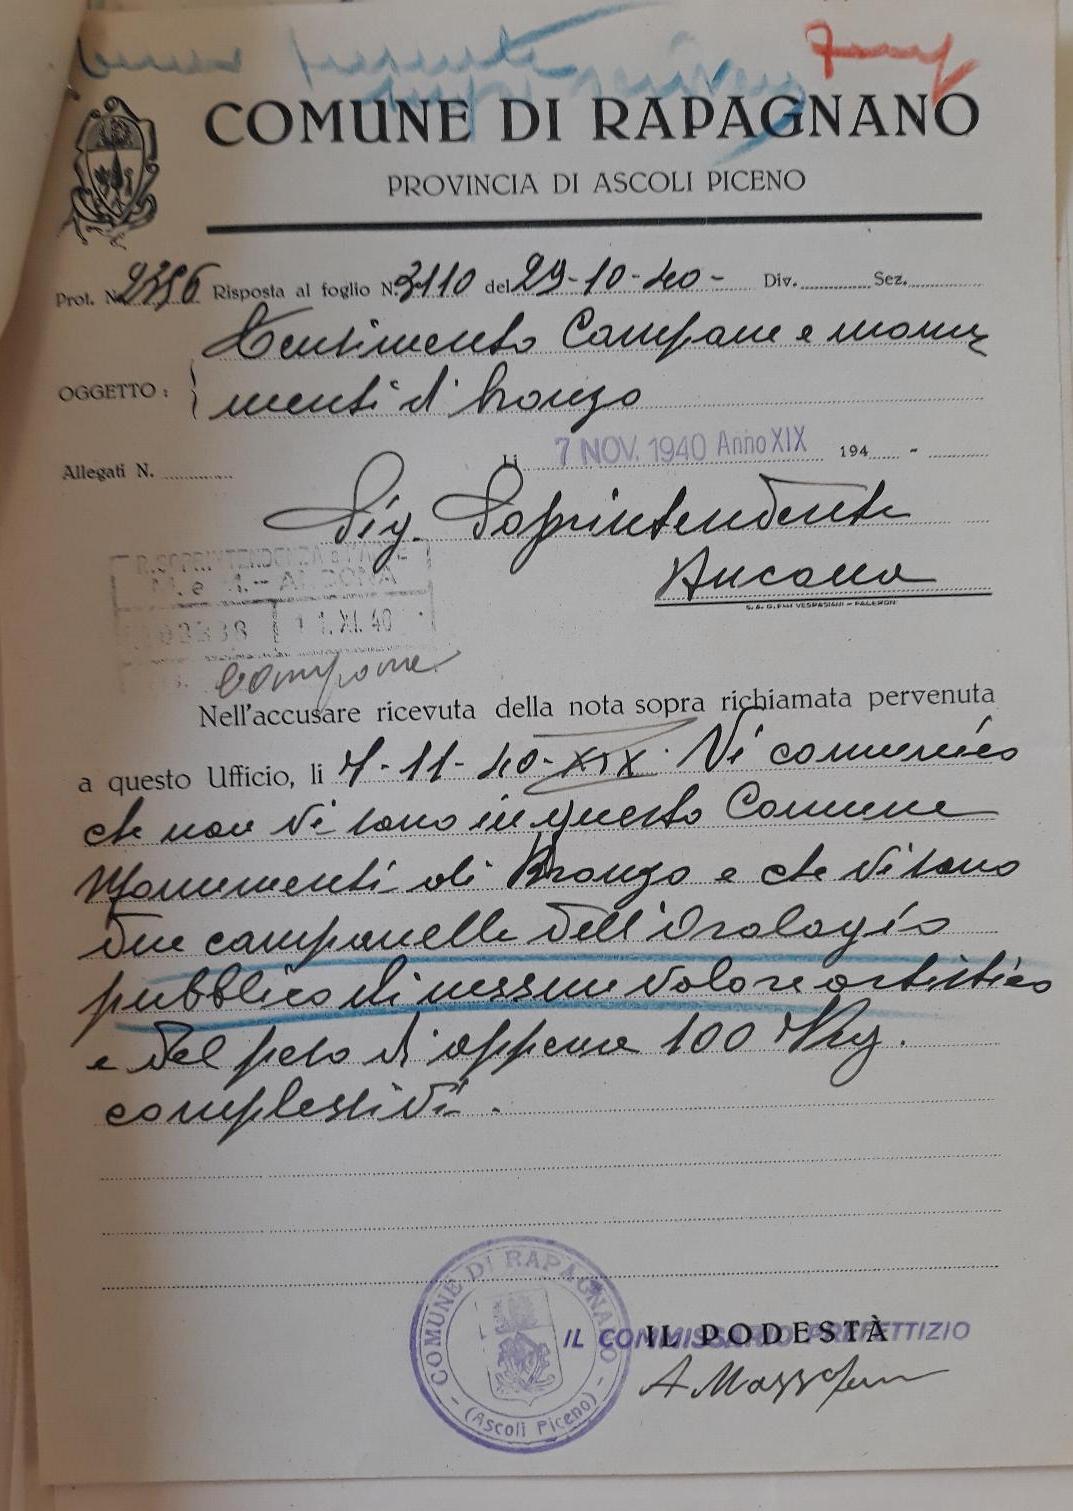 COMUNE DI RAPAGNANO
PROVINCIA DI ASCOLI PICENO
Prot. N. 2356 Risposta al foglio N. 3110 del 29-10-40- Div. Sez.
Censimento Campane e monu
OGGETTO:
menti di bronzo
Allegati N.
li 7 NOV. 1940 Anno XIX 194
Sig. Soprintendente
Ancona
S. A. G. F.lli VESPASIANI - FALERON
R. SOPRINTENDENZA
M. e A. - ANCONA
11. XI. 40
Campane
Nell'accusare ricevuta della nota sopra richiamata pervenuta
a questo Ufficio, li 7-11-40-XIX. Vi comunico
che non vi sono in questo Comune
Monumenti di Bronzo e che vi sono
due campanelle dell'Orologio
pubblico di nessun valore artistico
e del peso di appena 100 Kg.
complessivi.
COMUNE DI RAPAGNANO
(Ascoli Piceno)
IL PODESTÀ
IL COMMISSARIO PREFETTIZIO